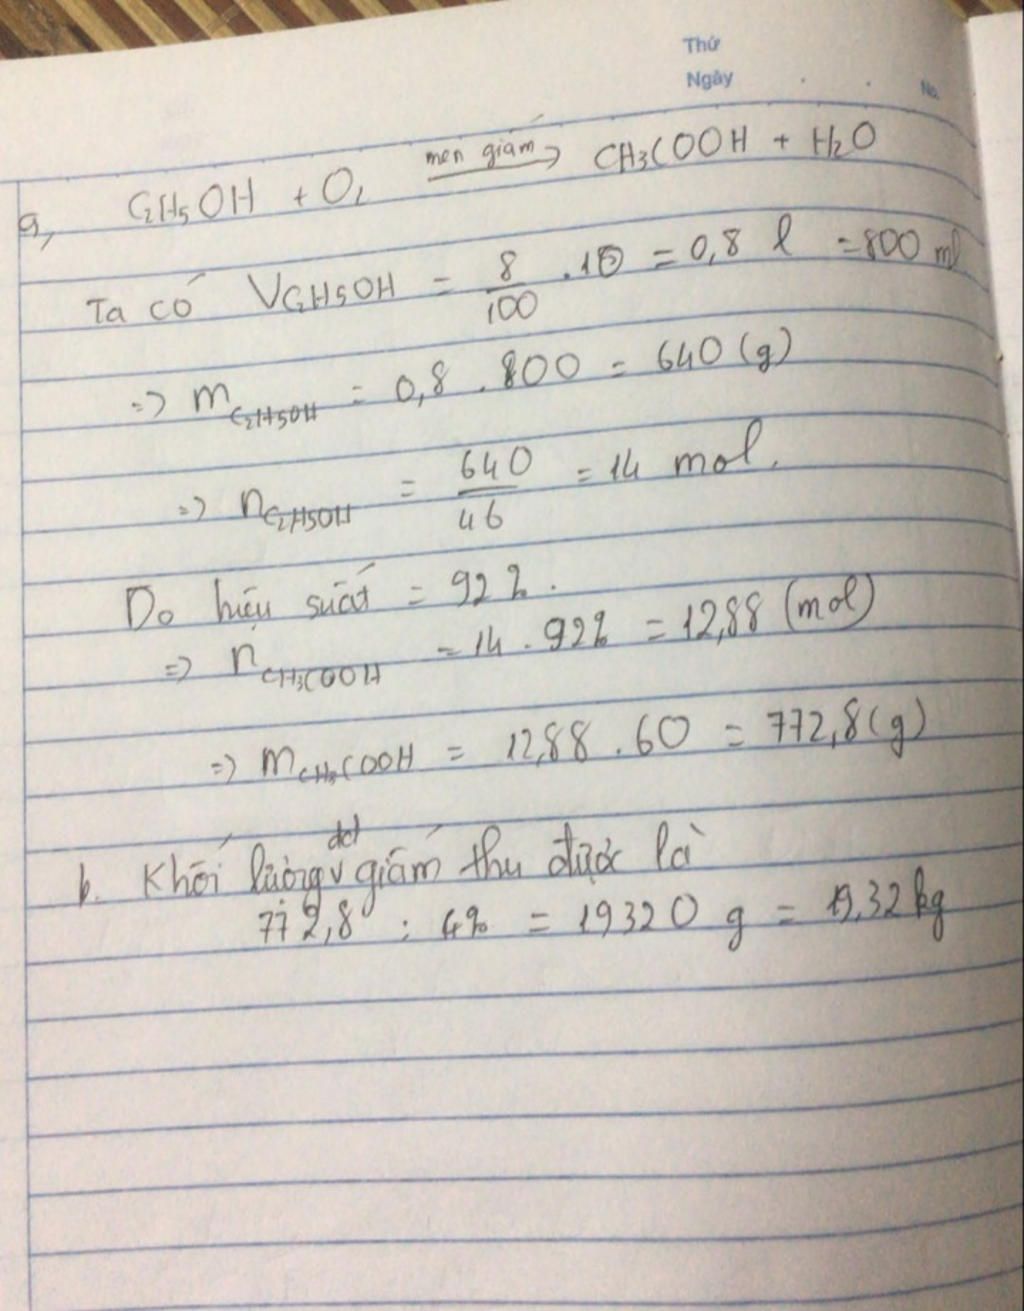 Thứ
Ngày
No.
a, C2H5OH + O2 men giấm → CH3COOH + H2O
Ta có VC2H5OH = 8/100 . 10 = 0,8 l = 800 ml
=> mC2H5OH = 0,8 . 800 = 640 (g)
=> nC2H5OH = 640/46 = 14 mol.
Do hiệu suất = 92%.
=> nCH3COOH = 14 . 92% = 12,88 (mol)
=> mCH3COOH = 12,88 . 60 = 772,8 (g)
b. Khối lượng dd giấm thu được là
772,8 : 4% = 19320 g = 19,32 kg